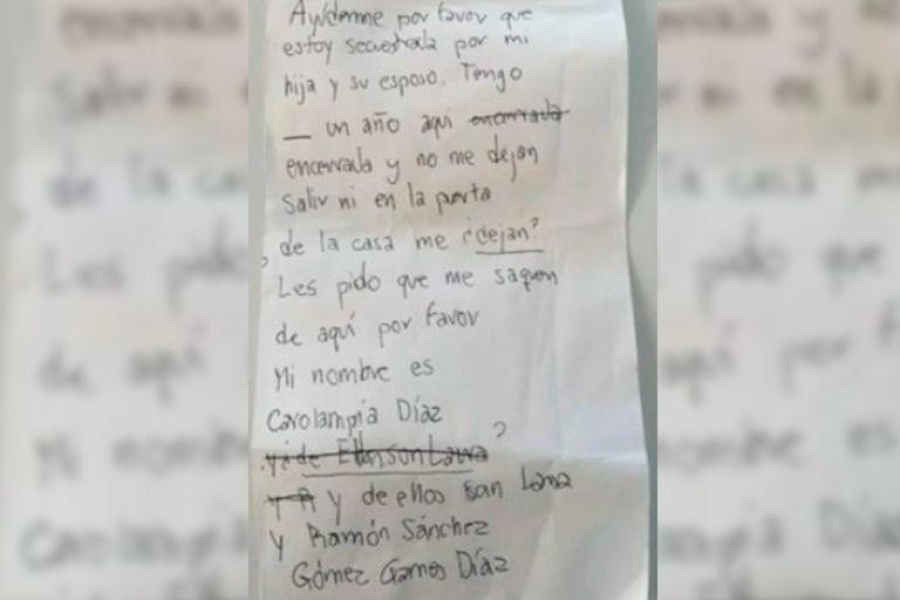 Ayúdenme por favor que
estoy secuestrada por mi
hija y su esposo. Tengo
_ un año aqui encerrada
encerrada y no me dejan
Salir ni en la perta
de la casa me ¿dejan?
Les pido que me saquen
de aquí por favor
Mi nombre es
Carolampia Díaz
?
y de ellos son
y Ramón Sánchez
Gómez Gamos Díaz